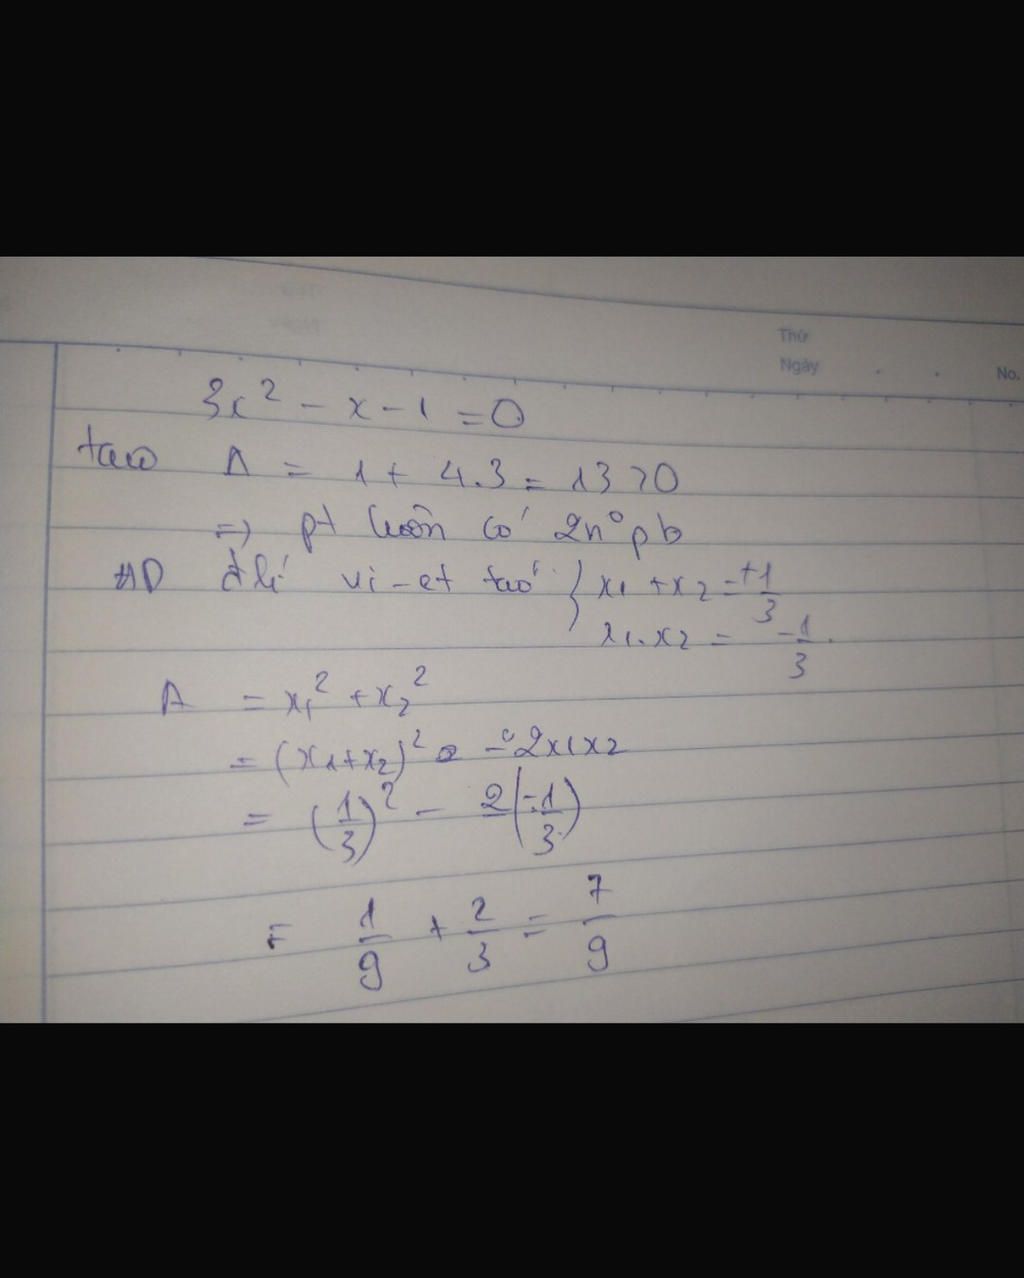 Thứ
Ngày
No.
3x² - x - 1 = 0
taco Δ = 1 + 4.3 = 13 > 0
=> pt luôn có 2n° pb
AD đlí vi-et taco { x₁ + x₂ = +1/3
x₁.x₂ = -1/3
A = x₁² + x₂²
= (x₁+x₂)² - 2x₁x₂
= (1/3)² - 2(-1/3)
= 1/9 + 2/3 = 7/9